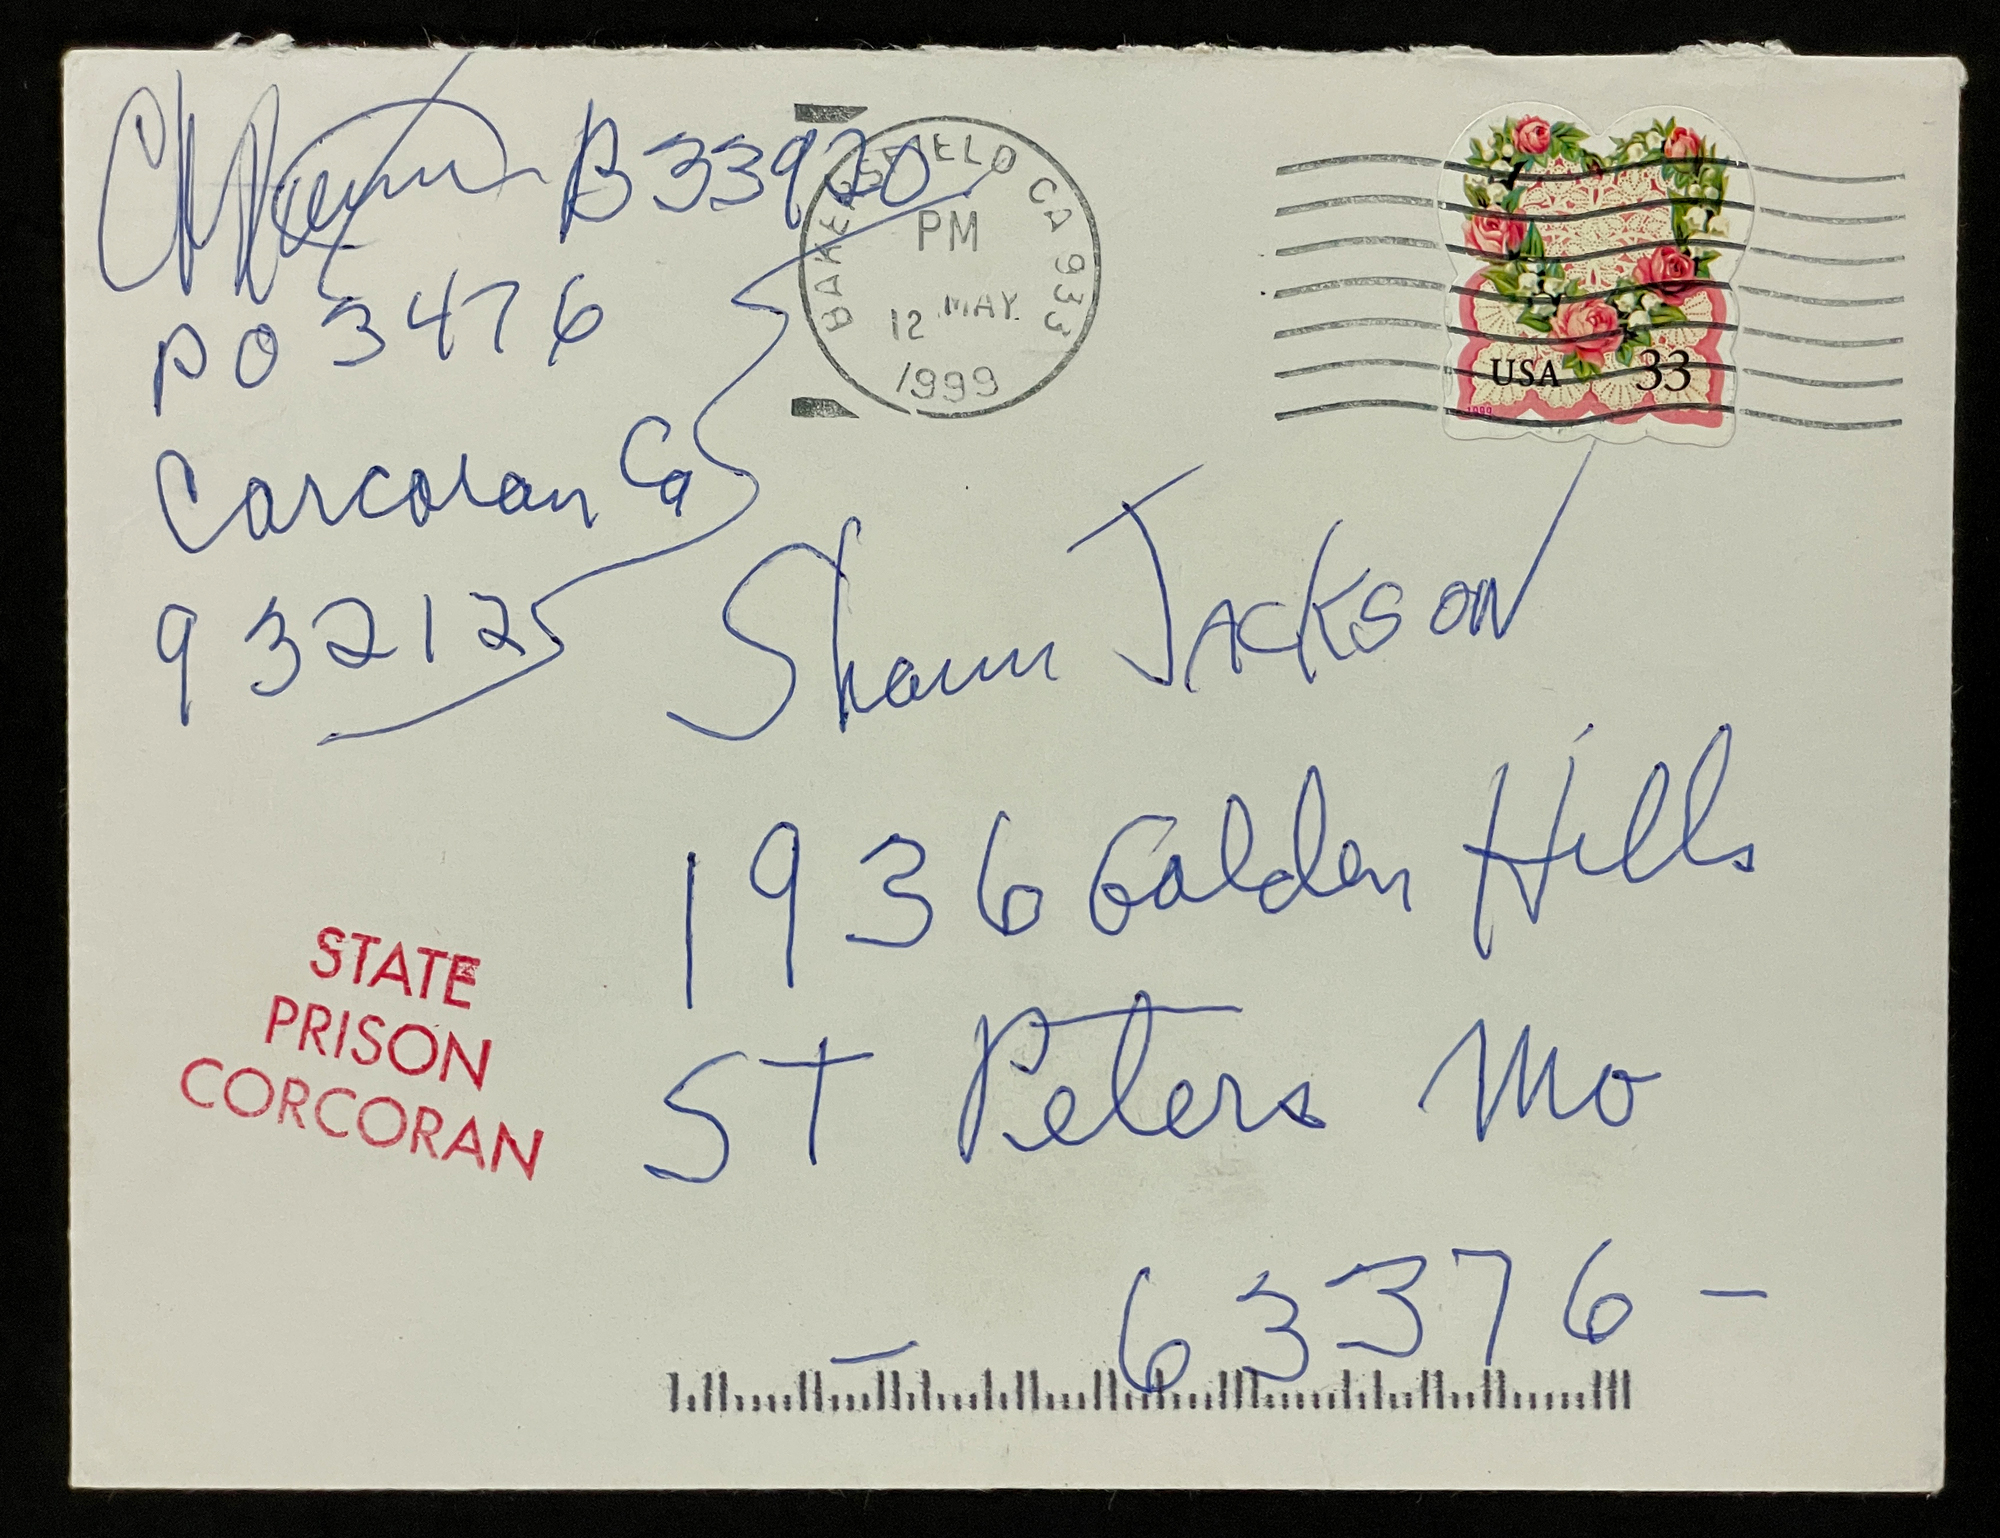 B33920
PO 3476
Corcoran Ca
93212
BAKERSFIELD CA 933
PM
12 MAY
1999
USA 33
1999
Shawn JACKSON
1936 Golden Hills
ST Peters Mo
63376-
STATE
PRISON
CORCORAN